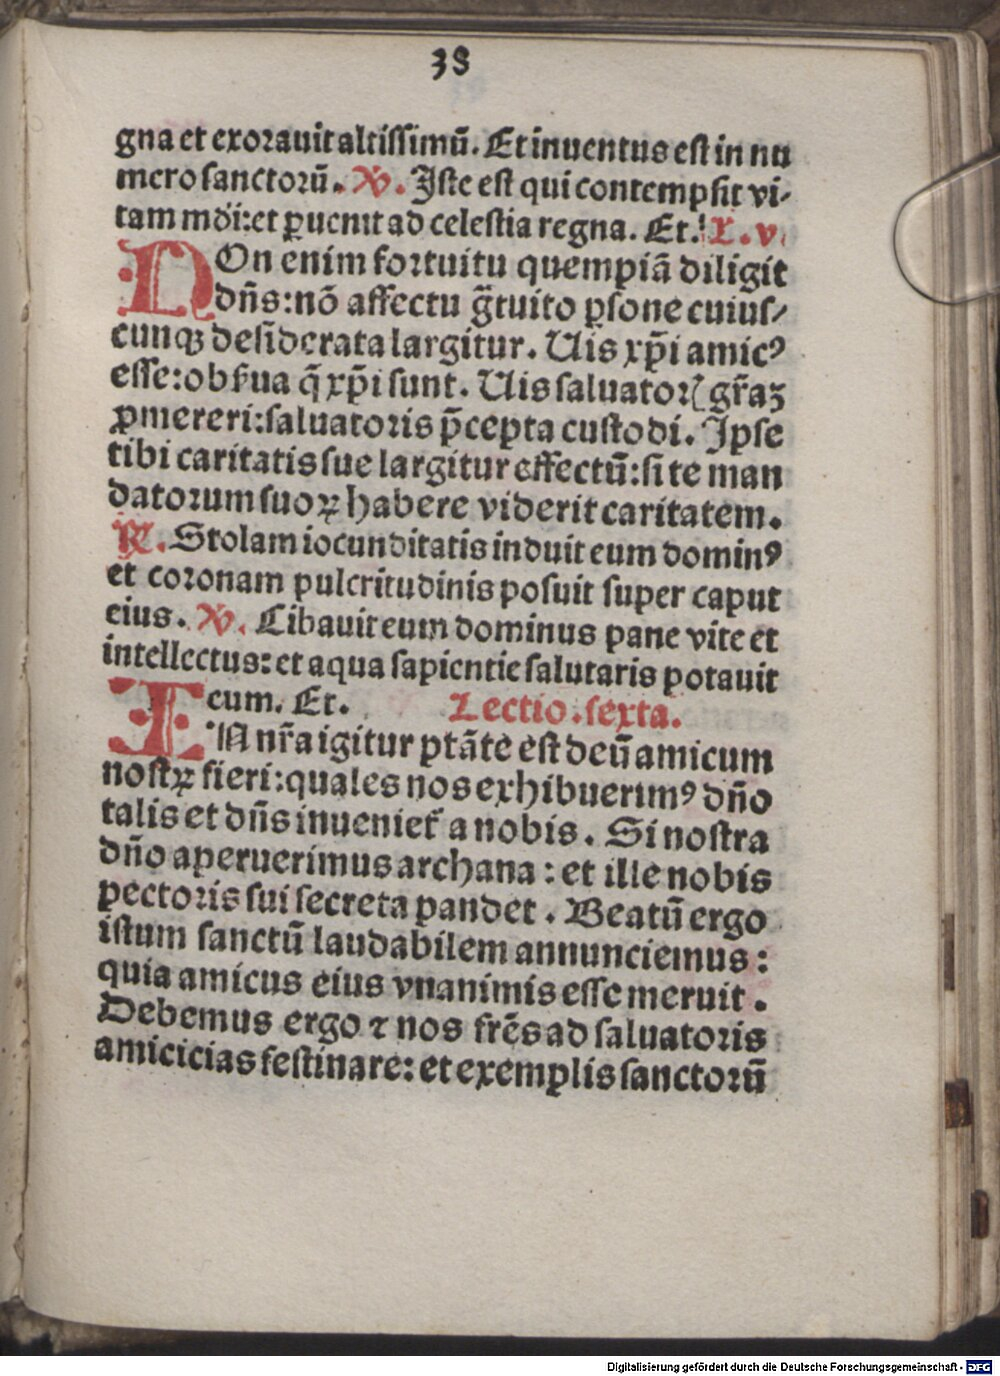 38
gna et exorauit altissimū. Et īnuentus est in nu
mero sanctorū. V̇. Iste est qui contempsit vi-
tam mōi: et ꝑuenit ad celestia regna. Et. L. v
NOn enim fortuitu quempiā diligit
dn̄s: nō affectu g̃tuito ꝑsone cuius/
cunqꝫ desiderata largitur. Uis xp̄i amicꝰ
esse: obẜua q̄ xp̄i sunt. Uis saluatorꝭ gr̄aꝫ
ꝓmereri: saluatoris p̄cepta custodi. Ipse
tibi caritatis sue largitur effectū: si te man
datorum suoꝝ habere viderit caritatem.
℟. Stolam iocunditatis induit eum dominꝰ
et coronam pulcritudinis posuit super caput
eius. V̇. Cibauit eum dominus pane vite et
intellectus: et aqua sapientie salutaris potauit
eum. Et. Lectio. sexta.
IN nr̄a igitur ptāte est deū amicum
nostꝝ fieri: quales nos exhibuerimꝰ dn̄o
talis et dn̄s inueniet᷑ a nobis. Si nostra
dn̄o aperuerimus archana: et ille nobis
pectoris sui secreta pandet. Beatū ergo
istum sanctū laudabilem annunciemus:
quia amicus eius vnanimis esse meruit.
Debemus ergo ⁊ nos fr̄es ad saluatoris
amicicias festinare: et exemplis sanctorū
Digitalisierung gefördert durch die Deutsche Forschungsgemeinschaft - DFG